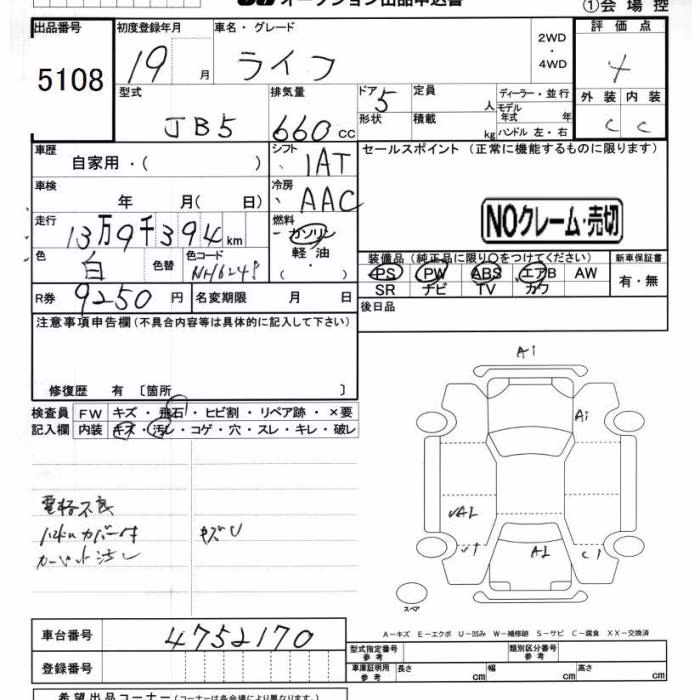 オークション出品申込書 ①会場控
出品番号 初度登録年月 車名・グレード 2WD・4WD 評価点
5108 19 月 ライフ 4
型式 排気量 ドア 定員 人 ディーラー・並行 外装 内装
JB5 660cc 5 形状 積載 kg モデル年式 年 ハンドル 左・右 C C
車歴 シフト セールスポイント(正常に機能するものに限ります)
自家用・( ) IAT
車検 冷房
年 月( 日) AAC
走行 燃料 NOクレーム・売切
13万9千394km ガソリン
軽油
( ・ )
色 色替 色コード 装備品(純正品に限り○をつけてください) 新車保証書
白 NH624P PS PW ABS エアB AW 有・無
R券 9250円 名変期限 月 日 SR ナビ TV カワ
後日品
注意事項申告欄(不具合内容等は具体的に記入して下さい)
修復歴 有 〔箇所 〕
検査員 FW キズ・飛石・ヒビ割・リペア跡・×要
記入欄 内装 キズ・汚レ・コゲ・穴・スレ・キレ・破レ
電格不良
カーペット汚レ
キズU
A1
A1
UA1
A1
スペア
A-キズ E-エクボ U-凹み W-補修跡 S-サビ C-腐食 XX-交換済
車台番号 4752170
登録番号
型式指定番号 参考 類別区分番号 参考
車庫証明用 参考 長さ cm 幅 cm 高さ cm
希望出品コーナー(コーナーは各会場により異なります。)